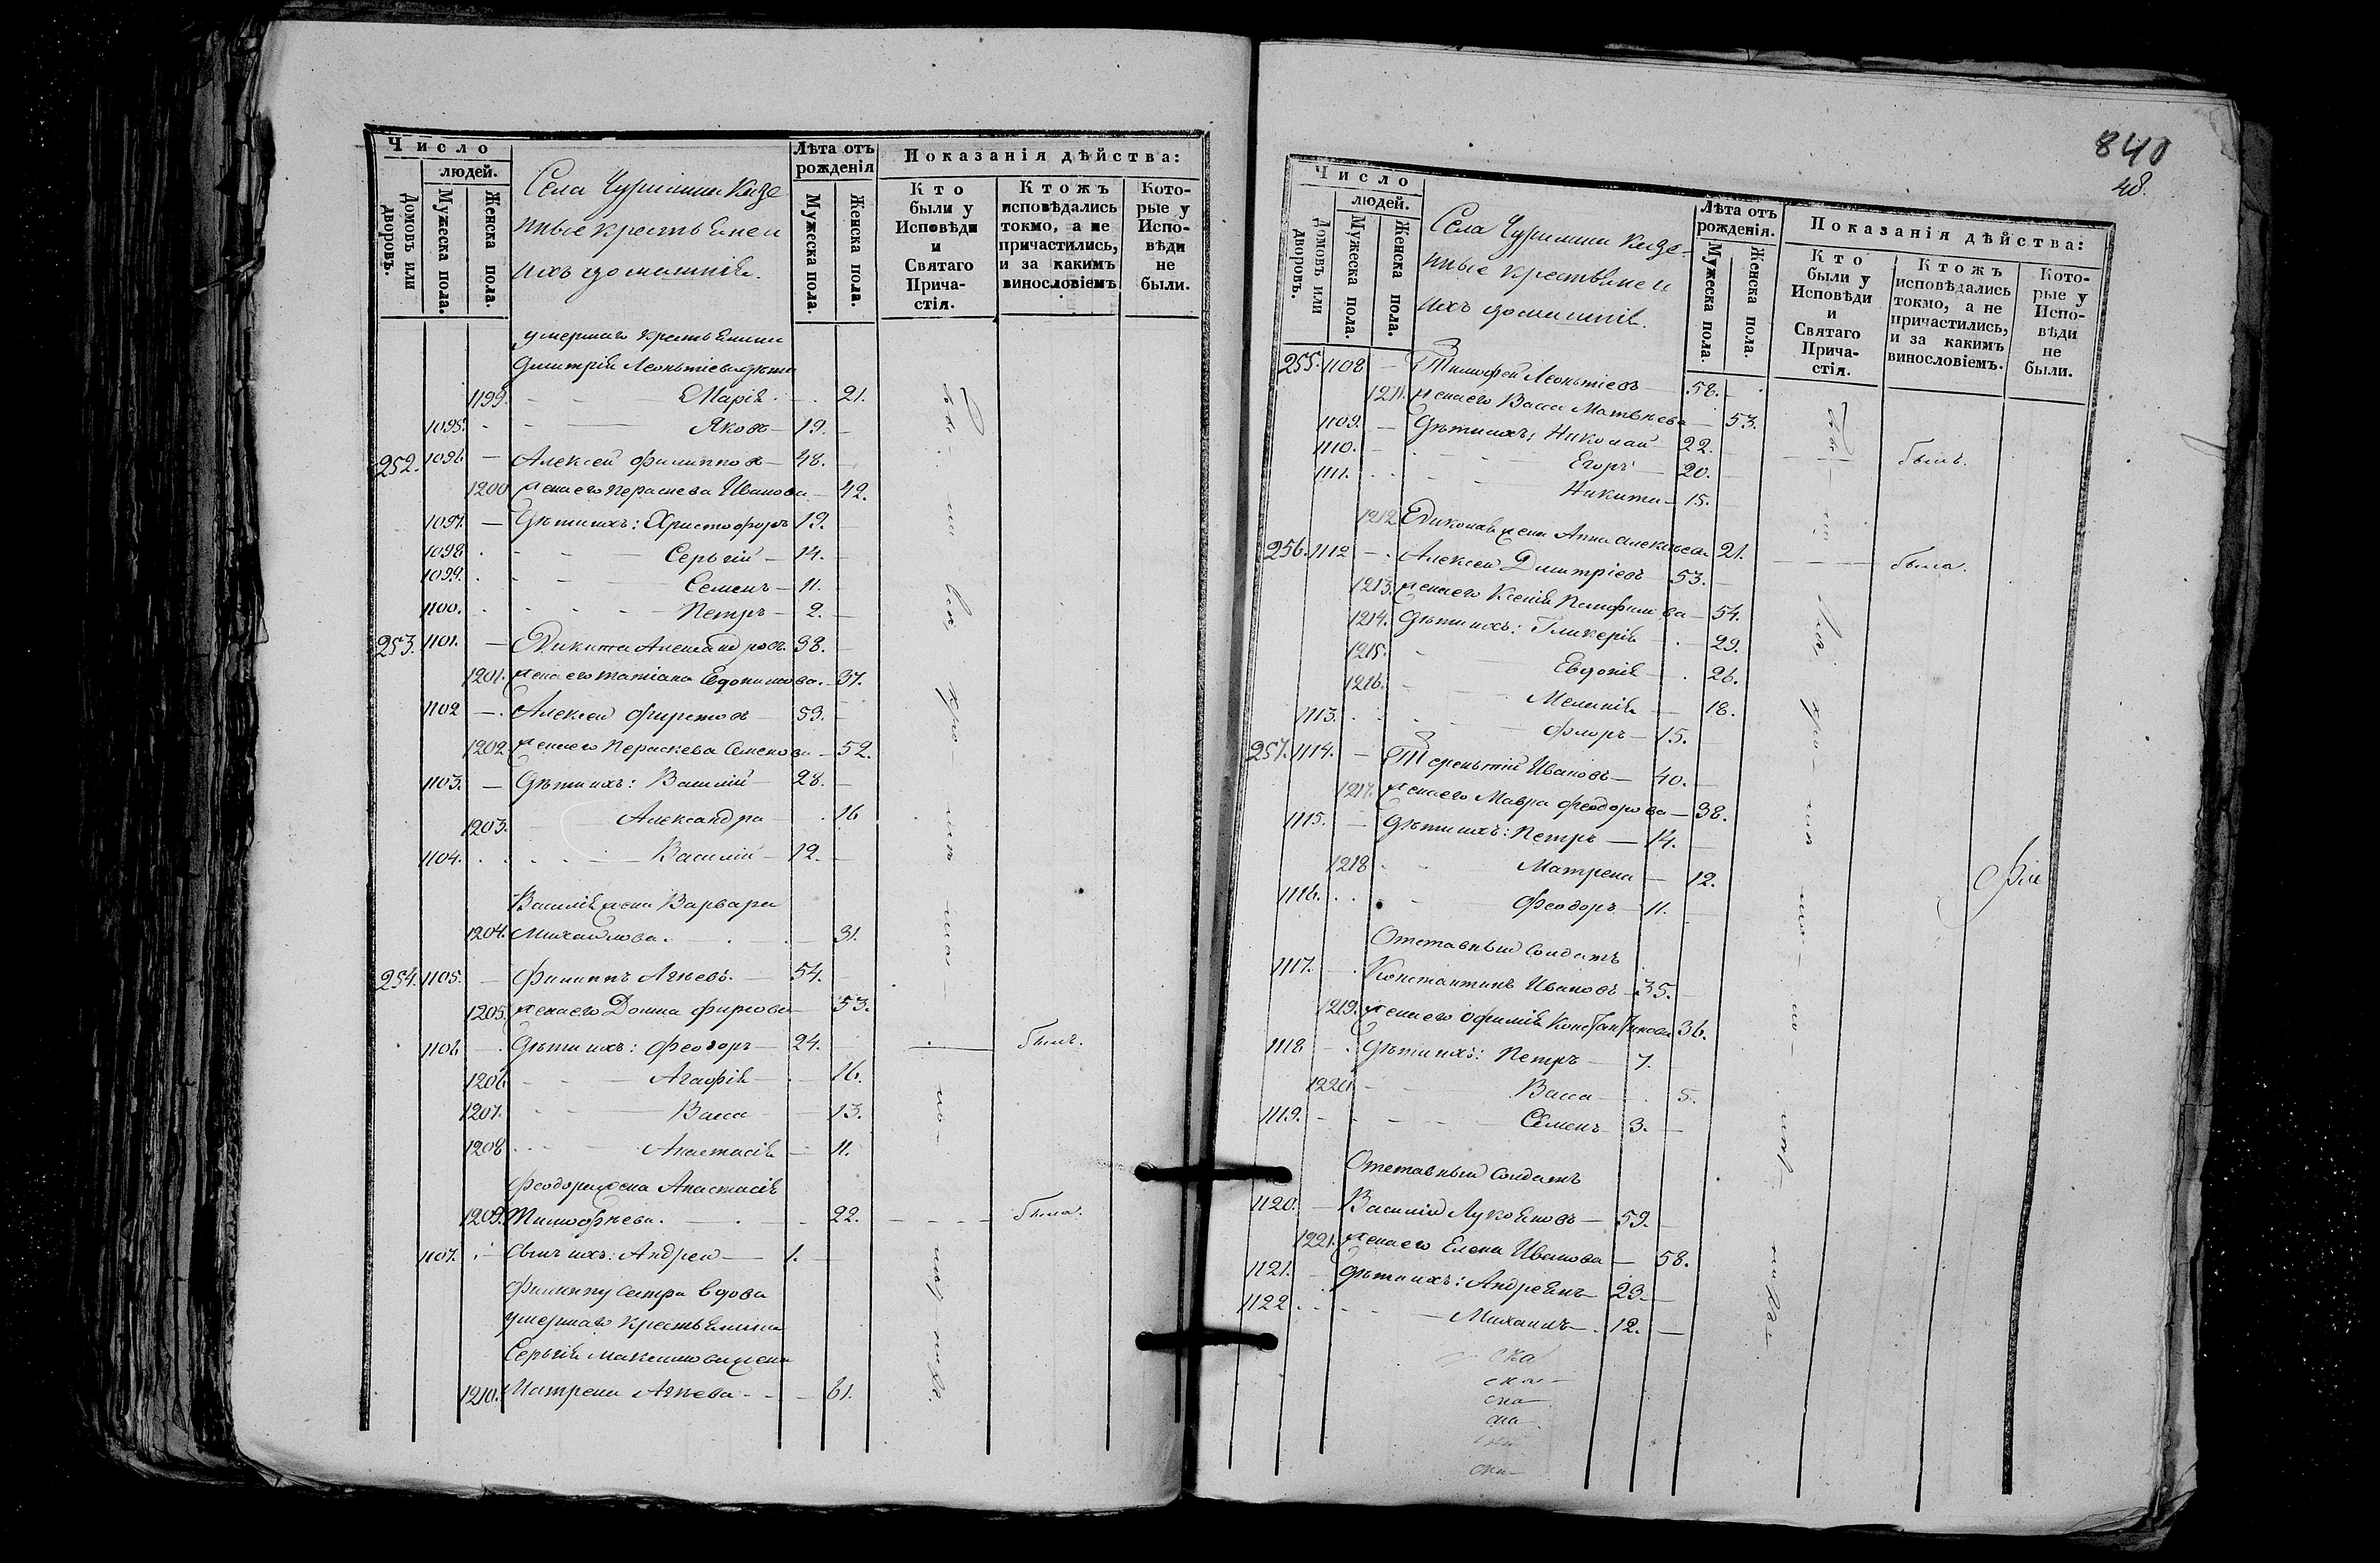 Число
людей.
Домовъ или дворовъ.
Мужеска пола.
Женска пола.
Села Казе
нные крестьяне и
ихъ домашнія.
Лѣта отъ рожденія
Мужеска пола.
Женска пола.
Показанія дѣйства:
Кто были у Исповѣди и Святаго Прича-стія.
Ктожъ исповѣдались токмо, а не причастились, и за какимъ винословіемъ
Кото-рые у Испо-вѣди не были.
умершаго крестьянина
Димитрія Леонтіева дѣти
1199. Марія 21.
1095. Яковъ 19.
252. 1096. Алексей Филипповъ 48.
1200 жена его Параскева Иванова 42.
1097. Дѣти ихъ: Христофоръ 19.
1098. Сергій 14.
1099. Семенъ 11.
1100. Петръ 2.
253. 1101. Никита Александровъ 38.
1201. жена его Татіана Евдокимова 37.
1102 Алексей Фирстовъ 59.
1202. жена его Параскева Семенова 52.
1103. Дѣти ихъ: Василій 28.
1203. Александра 16
1104. Василій 12.
Василія жена Варвара
1204. Михайлова 31.
254. 1105. Филиппъ Агѣевъ 54.
1205. жена его Домна Фирсова 53.
1106 Дѣти ихъ: Феодоръ 24. былъ.
1206 Агафія 16.
1207. Васса 13.
1208 Анастасія 11.
Феодора жена Анастасія
1209. Тимофѣева. 22. была.
1107. Сынъ ихъ: Андрей 1.
Филиппу сестра вдова
умершаго крестьянина
Сергія Максимова жена
1210. Матрена Агѣева 61.
840
48.
Число
людей.
Домовъ или дворовъ.
Мужеска пола.
Женска пола.
Села Казе-
нные крестьяне и
ихъ домашнія.
Лѣта отъ рожденія.
Мужеска пола.
Женска пола.
Показанія дѣйства:
Кто были у Исповѣди и Святаго Прича-стія.
Ктожъ исповѣдались токмо, а не причастились, и за какимъ винословіемъ.
Кото-рые у Испо-вѣди не были.
255. 1108 Тимофей Леонтіевъ 58.
1211. жена его Васса Матвѣева 53.
1109. Дѣти ихъ: Николай 22. былъ.
1110. Егоръ 20.
1111. Никита 15.
1212 Николая жена Анна Алексѣева 21. была.
256. 1112 Алексей Димитріевъ 53.
1213. жена его Ксенія Памфилова 54.
1214. Дѣти ихъ: Гликерія 29.
1215. Евдокія 26.
1216. Меланія 18.
1113. Флоръ 15.
257. 1114. Терентій Ивановъ 40.
1217. жена его Мавра Феодорова 38.
1115. Дѣти ихъ: Петръ 14.
1218 Матрена 12.
1116. Феодоръ 11.
Отставный солдатъ
1117. Константинъ Ивановъ 35.
1219. жена его Офимія Константинова 36.
1118 Дѣти ихъ: Петръ 7.
1220 Васса 5.
1119. Семенъ 3.
Отставный солдатъ
1120. Василій Лукояновъ 59.
1221. жена его Елена Иванова 58.
1121. Дѣти ихъ: Андреянъ 23.
1122 Михаилъ 12.
ска
ска